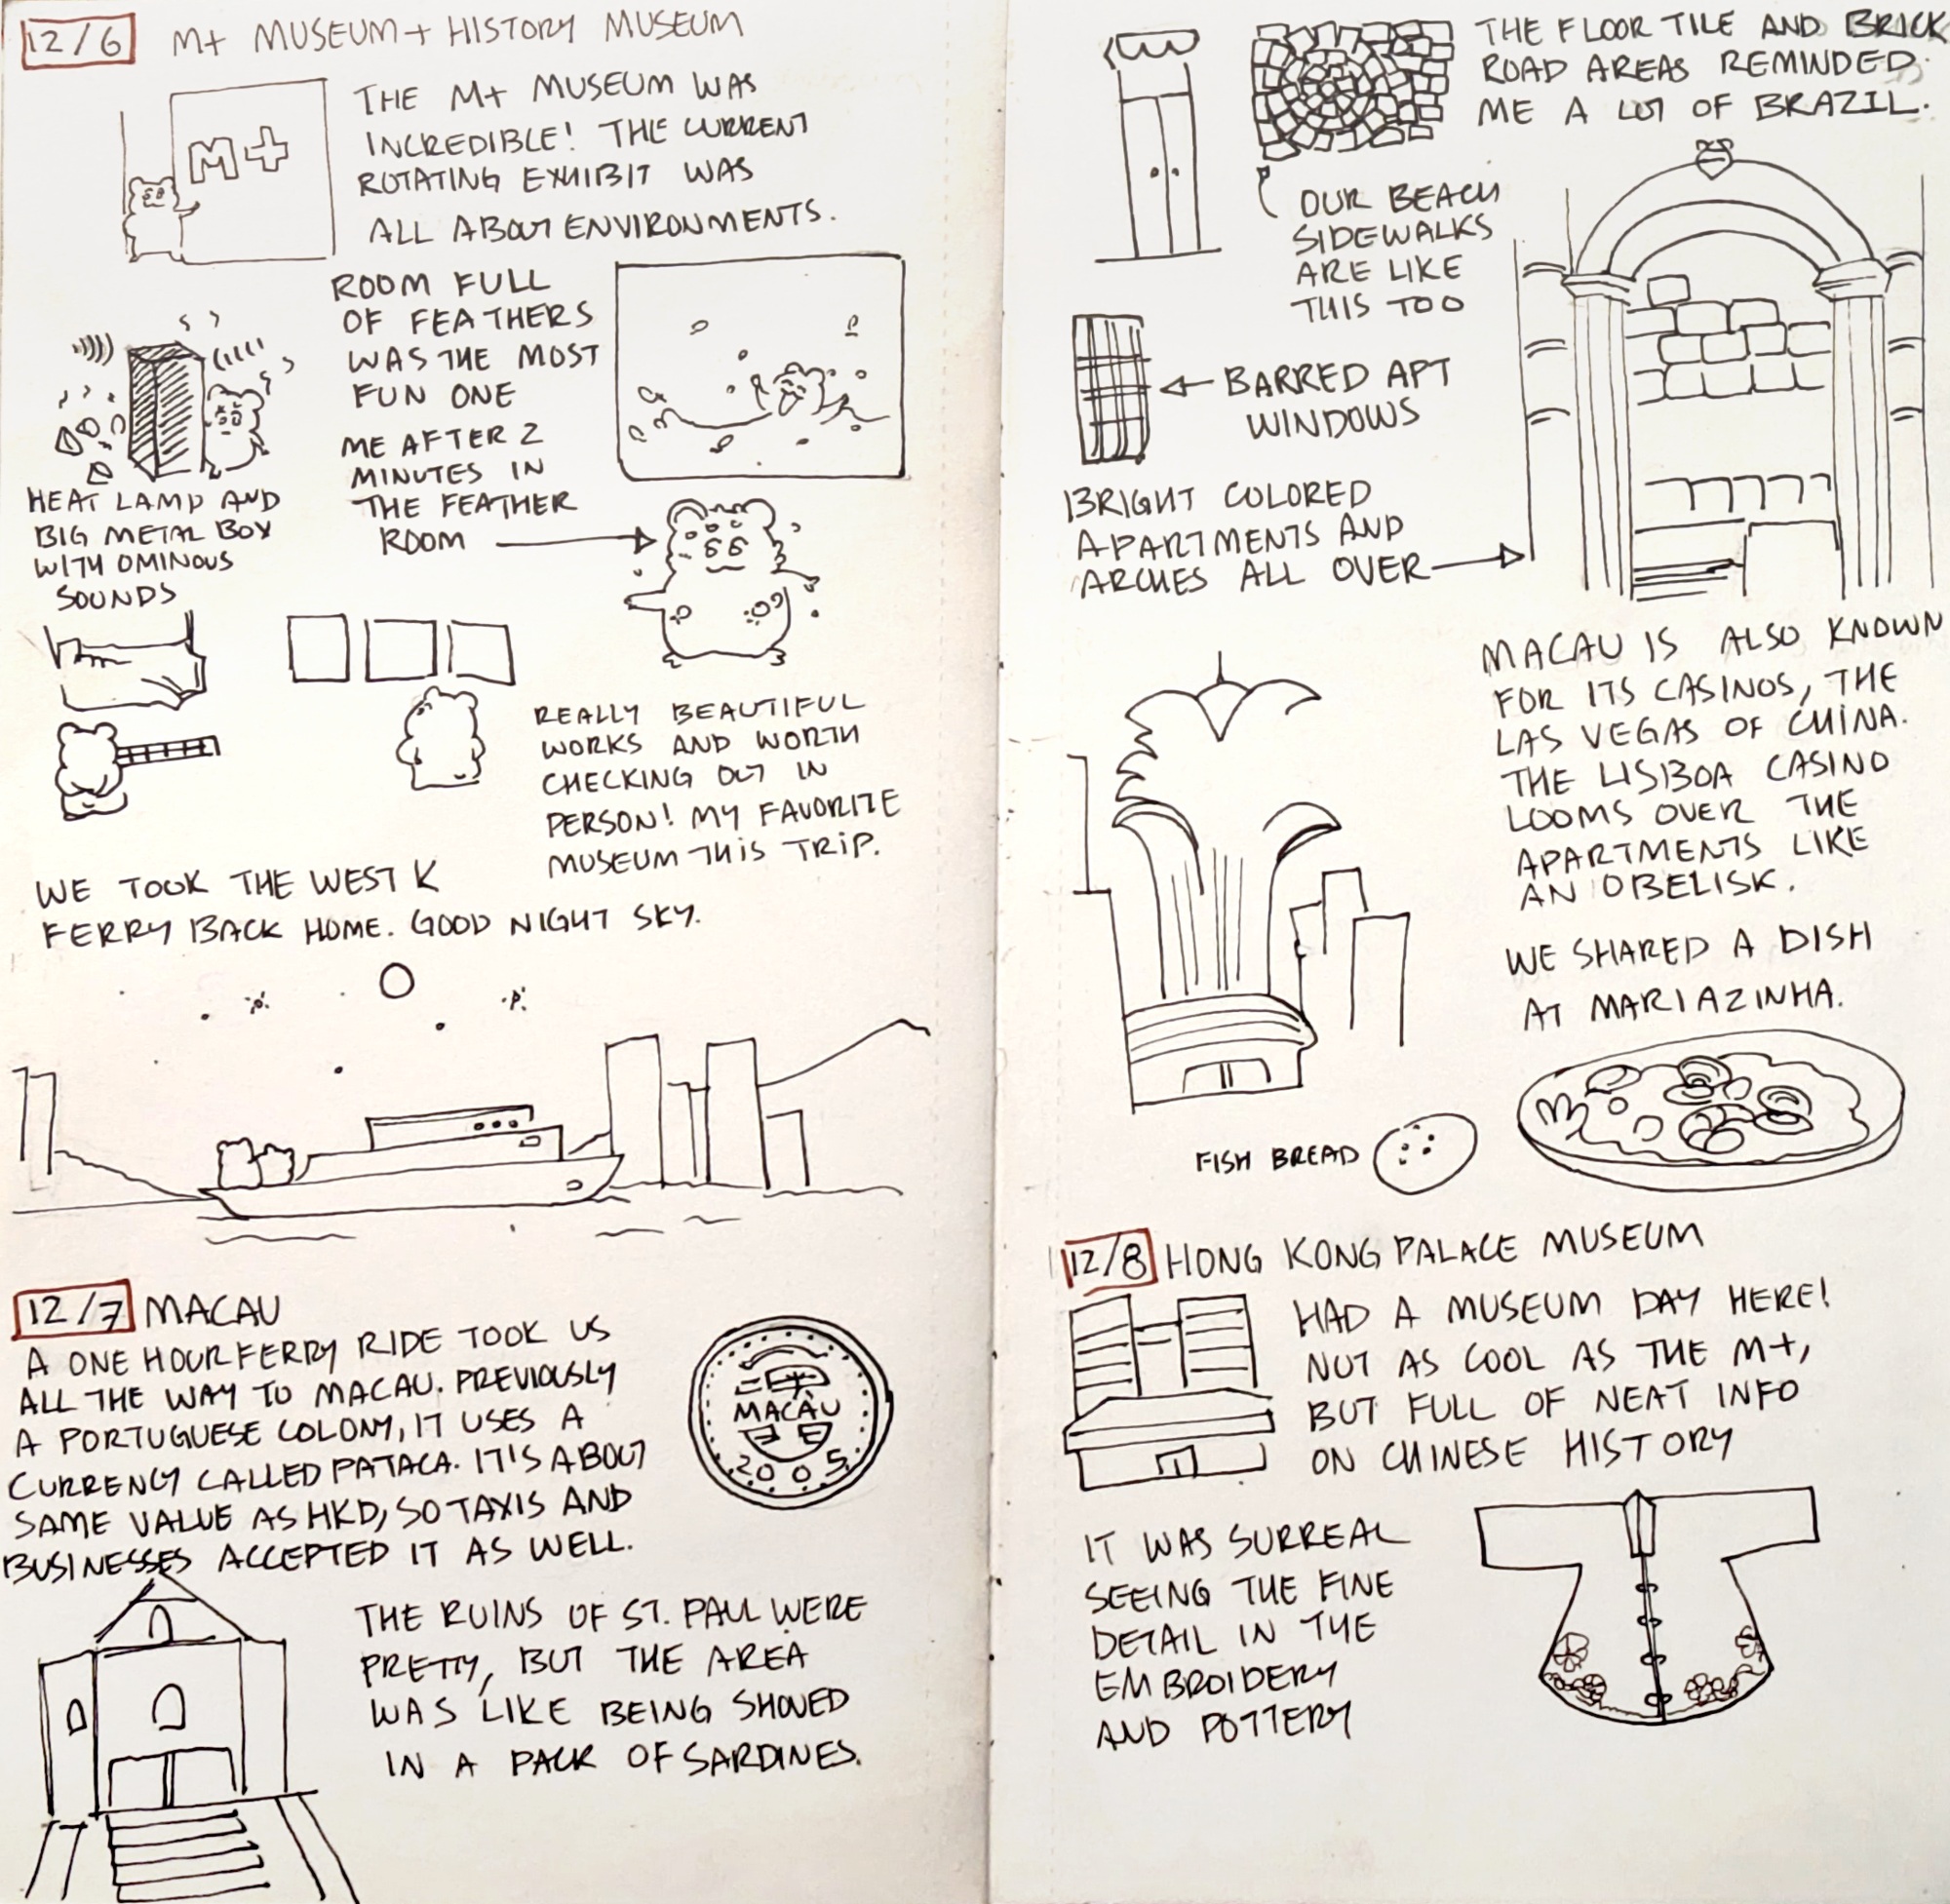 12/6 M+ MUSEUM + HISTORY MUSEUM
THE M+ MUSEUM WAS
INCREDIBLE! THE CURRENT
ROTATING EXHIBIT WAS
ALL ABOUT ENVIRONMENTS.
M+
ROOM FULL
OF FEATHERS
WAS THE MOST
FUN ONE
ME AFTER 2
MINUTES IN
THE FEATHER
ROOM
HEAT LAMP AND
BIG METAL BOX
WITH OMINOUS
SOUNDS
REALLY BEAUTIFUL
WORKS AND WORTH
CHECKING OUT IN
PERSON! MY FAVORITE
MUSEUM THIS TRIP.
WE TOOK THE WEST K
FERRY BACK HOME. GOOD NIGHT SKY.
12/7 MACAU
A ONE HOUR FERRY RIDE TOOK US
ALL THE WAY TO MACAU. PREVIOUSLY
A PORTUGUESE COLONY, IT USES A
CURRENCY CALLED PATACA. IT'S ABOUT
SAME VALUE AS HKD, SO TAXIS AND
BUSINESSES ACCEPTED IT AS WELL.
MACAU
2005
THE RUINS OF ST. PAUL WERE
PRETTY, BUT THE AREA
WAS LIKE BEING SHOVED
IN A PACK OF SARDINES.
THE FLOOR TILE AND BRICK
ROAD AREAS REMINDED
ME A LOT OF BRAZIL.
OUR BEACH
SIDEWALKS
ARE LIKE
THIS TOO
BARRED APT
WINDOWS
BRIGHT COLORED
APARTMENTS AND
ARCHES ALL OVER
MACAU IS ALSO KNOWN
FOR ITS CASINOS, THE
LAS VEGAS OF CHINA.
THE LISBOA CASINO
LOOMS OVER THE
APARTMENTS LIKE
AN OBELISK.
WE SHARED A DISH
AT MARIAZINHA.
FISH BREAD
12/8 HONG KONG PALACE MUSEUM
HAD A MUSEUM DAY HERE!
NOT AS COOL AS THE M+,
BUT FULL OF NEAT INFO
ON CHINESE HISTORY
IT WAS SURREAL
SEEING THE FINE
DETAIL IN THE
EMBROIDERY
AND POTTERY